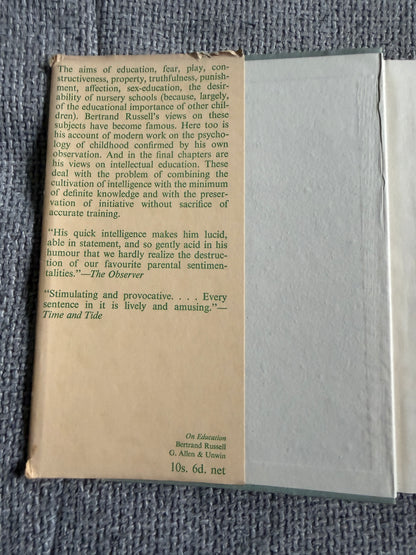 The aims of education, fear, play, con-
structiveness, property, truthfulness, punish-
ment, affection, sex-education, the desir-
ability of nursery schools (because, largely,
of the educational importance of other chil-
dren). Bertrand Russell's views on these
subjects have become famous. Here too is
his account of modern work on the psycho-
logy of childhood confirmed by his own
observation. And in the final chapters are
his views on intellectual education. These
deal with the problem of combining the
cultivation of intelligence with the minimum
of definite knowledge and with the preser-
vation of initiative without sacrifice of
accurate training.
“His quick intelligence makes him lucid,
able in statement, and so gently acid in his
humour that we hardly realize the destruc-
tion of our favourite parental sentimen-
talities.”—The Observer
“Stimulating and provocative. . . . Every
sentence in it is lively and amusing.”—
Time and Tide
On Education
Bertrand Russell
G. Allen & Unwin
10s. 6d. net